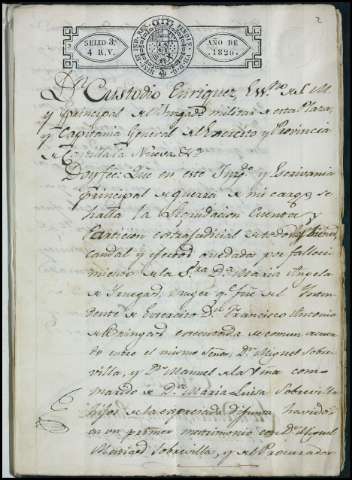 2
SELLO 3.º
4 R.V.
AÑO DE
1826.
Dn. Custodio Enriquez Essno. del
y principal del Juzgado militar de esta Plaza,
y Capitania General del Exercito y Provincia
de Castilla la Nueva &a.
Doy fee: Que en este Juzgo. y Escrivania
principal de guerra de mi cargo, se
halla la liquidacion Cuenta y
Particion extrajudicial de todos los bienes,
caudal y efectos quedados por falleci-
miento de la Sra. Da. Maria Angela
de muger qe. fue del Yntten-
dente de Exercito Dn. Francisco Antonio
de executada de comun acuer-
do entre el mismo Señor, Dn. Miguel Sobre-
villa, y Dn. Manuel de la Viña como
marido de Da. Maria Luisa Sobrevilla
hijos de la expresada difunta, havidos
en su primer matrimonio con Dn. Miguel
Sobrevilla, y el Procurador